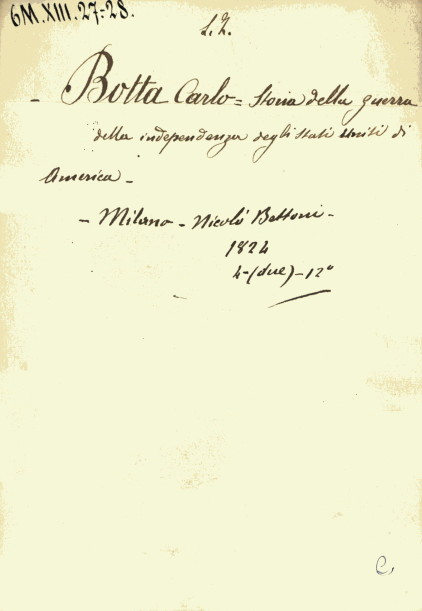 6M.XIII.27-28.
- Botta Carlo = Storia della guerra
della independenza degli Stati Uniti di
America -
- Milano - Nicolò Bettoni -
1824
4-(due)-12°
C,